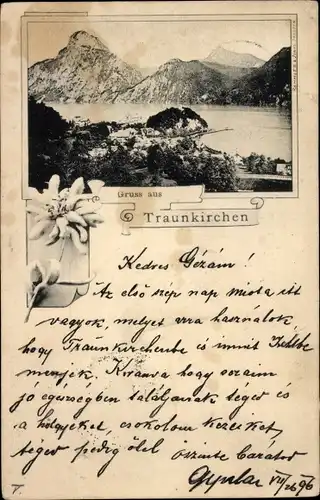 Gruss aus
Traunkirchen
Kedves Gézám!
Az első szép nap miota itt
vagyok, melyet arra használok
hogy Traunkirchenbe és innit
menjek. Kivánva hogy soraim
jó egészségben találjanak téged és
a hölgyeket, csokolom kezeiket,
téged pedig ölel őszinte barátod
Gyula VII/26 96